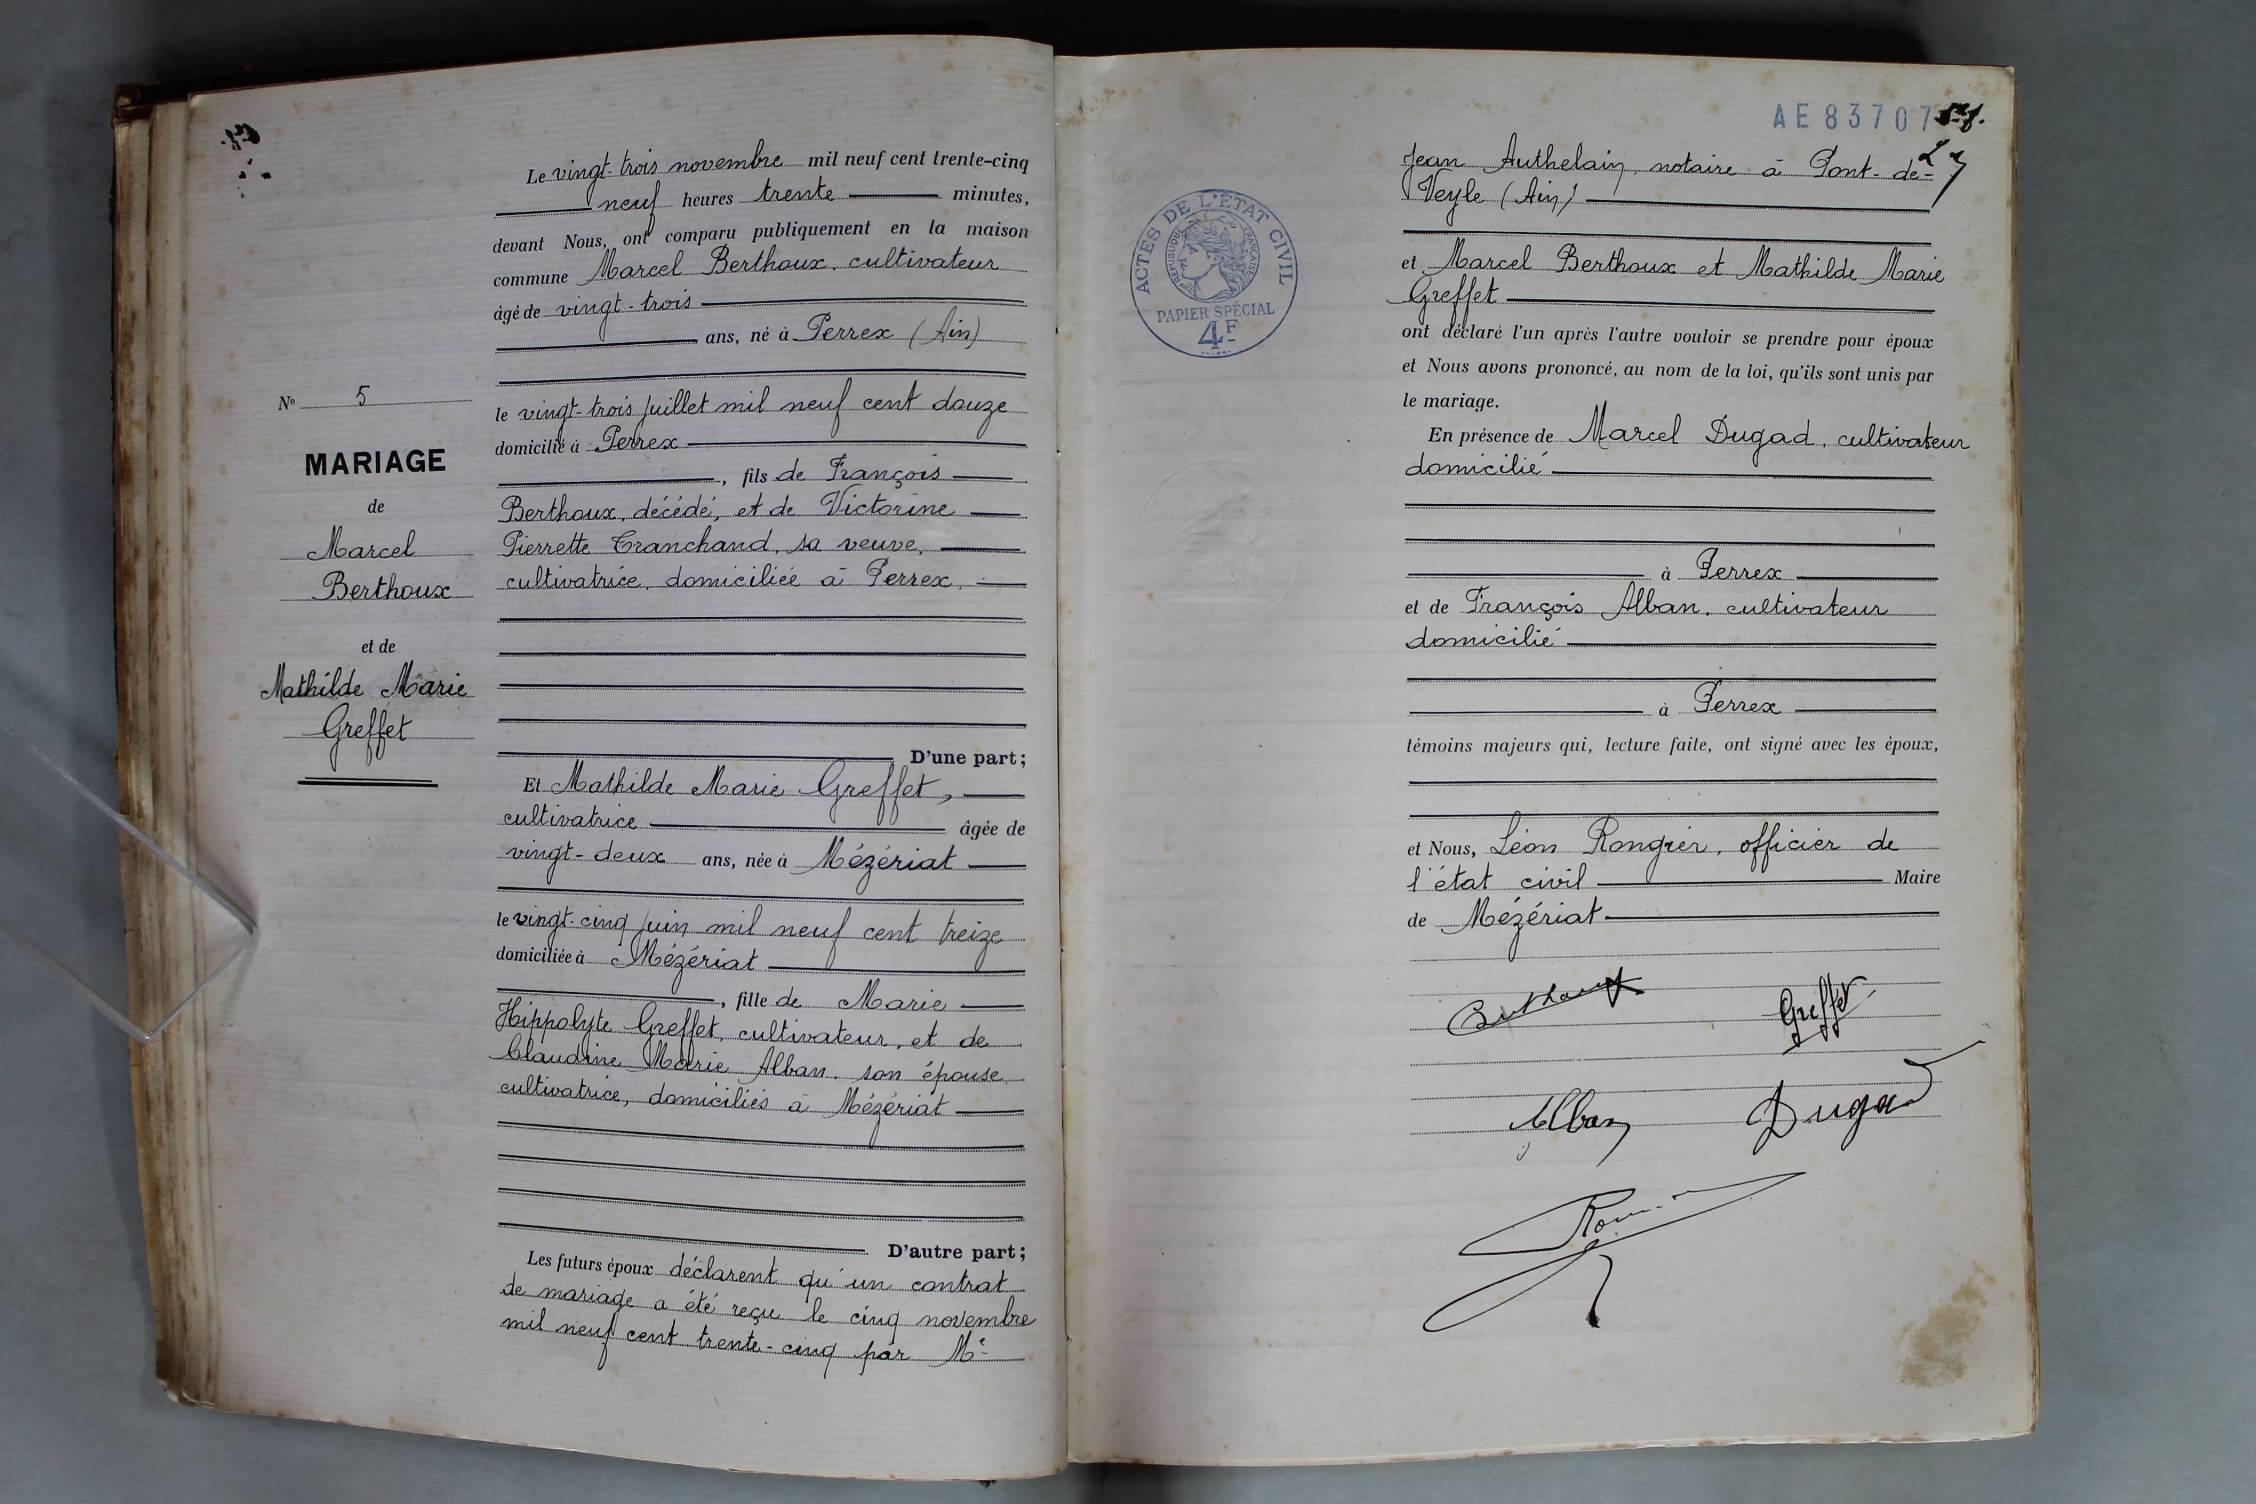 N° 5
MARIAGE
de
Marcel
Berthoux
et de
Mathilde Marie
Greffet
Le vingt-trois novembre mil neuf cent trente-cinq
neuf heures trente minutes,
devant Nous, ont comparu publiquement en la maison
commune Marcel Berthoux, cultivateur
âgé de vingt-trois
ans, né à Perrex (Ain)
le vingt-trois juillet mil neuf cent douze
domicilié à Perrex
, fils de François
Berthoux, décédé, et de Victorine
Pierrette Tranchand, sa veuve,
cultivatrice, domiciliée à Perrex,
D'une part;
Et Mathilde Marie Greffet,
cultivatrice âgée de
vingt-deux ans, née à Mézériat
le vingt-cinq juin mil neuf cent treize
domiciliée à Mézériat
, fille de Marie
Hippolyte Greffet, cultivateur, et de
Claudine Marie Alban, son épouse,
cultivatrice, domiciliés à Mézériat
D'autre part;
Les futurs époux déclarent qu'un contrat
de mariage a été reçu le cinq novembre
mil neuf cent trente-cinq par Me
AE83707
ACTES DE L'ÉTAT CIVIL
RÉPUBLIQUE FRANÇAISE
PAPIER SPÉCIAL
4F
Jean Authelain, notaire à Pont-de-
Veyle (Ain)
et Marcel Berthoux et Mathilde Marie
Greffet
ont déclaré l'un après l'autre vouloir se prendre pour époux
et Nous avons prononcé, au nom de la loi, qu'ils sont unis par
le mariage.
En présence de Marcel Dugad, cultivateur
domicilié
à Perrex
et de François Alban, cultivateur
domicilié
à Perrex
témoins majeurs qui, lecture faite, ont signé avec les époux,
et Nous, Léon Rongier, officier de
l'état civil Maire
de Mézériat
Berthoux Greffet
Alban Dugad